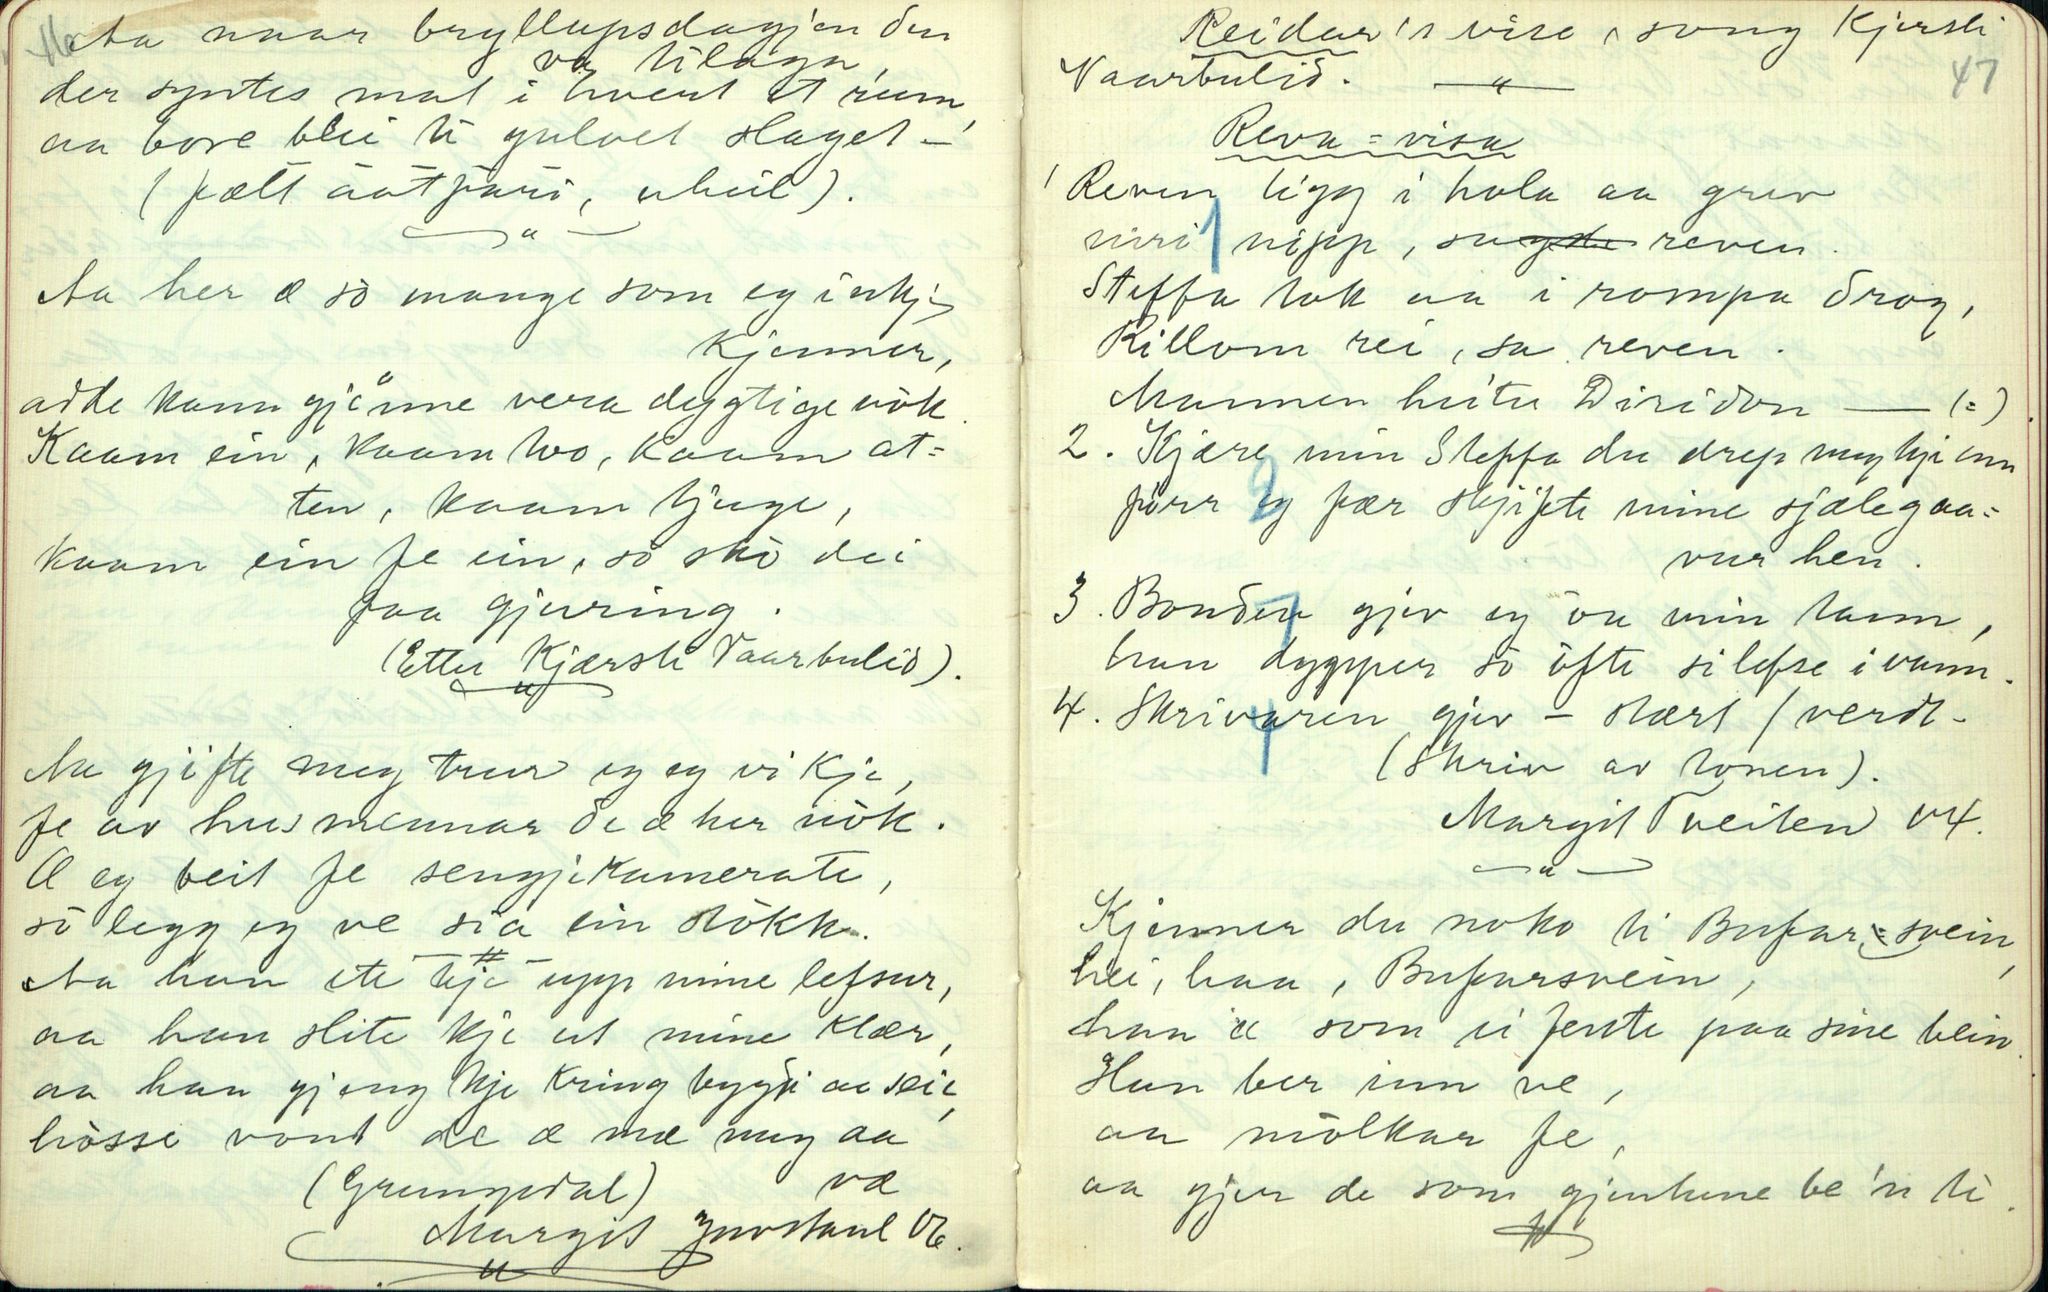 46
Aa naar bryllupsdagjen den
va tilagn,
der syntes mat i hvert et rum,
aa bore blei ti gulvet slaget –
(fælt aat fari, uheil).
Aa her æ so mange som eg inkje
kjenner,
adde kann gjønne vera dygtige nok.
Kaam ein, kaam two, kaam at=
ten, kaam tjuge,
kaam ein fe ein, so sko dei
faa gjering.
(Etter Kjærsti Vaarbulid).
Aa gjifte meg trur eg eg vi kje,
fe av husmennar de æ her nok.
Æ eg beit fe sengjikamerate,
so legg eg ve sia ein stokk.
Aa han ete kje upp mine lefsur,
aa han slite kje ut mine klær,
aa han gjeng kje kring bygdi aa seie,
hosse vont de æ mæ meg aa
væ
(Grungedal)
Margit 06.
47
Reidar's vise, song Kjersti
Vaarbulid.
Reva=visa
1 Reven ligg i hola aa grev
1
niri nipp, sagde reven.
Steffa tok aa i rompa drog,
Killom rei, sa reven.
Mannen heiter Diridon — (:)
2. Kjære min Steffa du drep meg kje enn
2
førr eg fær skjifte mine sjælegaa=
vur hen.
3. Bonden gjev eg ou min tann,
han dypper so ofte si lefse i vann.
4. Skrivaren gjev – stært / verdt –
4
(Skriv av tonen).
Margit Tveiten 04.
Kjenner du noko ti Bufar=svein,
hei, haa, Bufarsvein,
han æ som ei fente paa sine bein.
Han ber inn ve,
aa mølkar fe,
aa gjer de som gjentune be 'n ti.